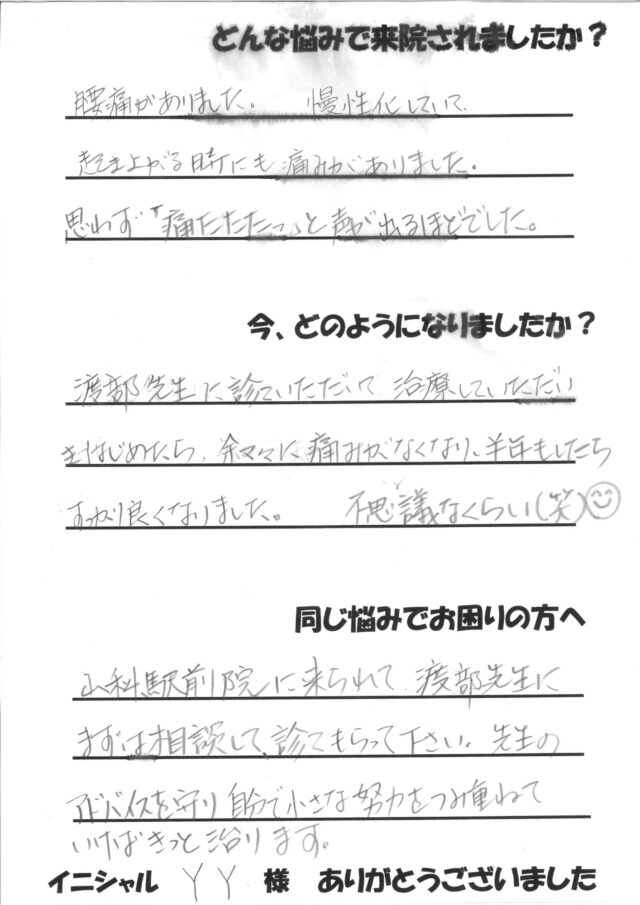 どんな悩みで来院されましたか？
腰痛がありました。 慢性化していて、
起き上がる時にも痛みがありました。
思わず「痛たたたっ」と声が出るほどでした。
今、どのようになりましたか？
渡部先生に診ていただいて、治療していただい
きはじめたら、徐々に痛みがなくなり、半年もしたら
すっかり良くなりました。 不思議なくらい(笑)
同じ悩みでお困りの方へ
山科駅前院に来られて、渡部先生に
まずは相談して、診てもらって下さい。先生の
アドバイスを守り自分で小さな努力をつみ重ねて
いけばきっと治ります。
イニシャル YY 様 ありがとうございました